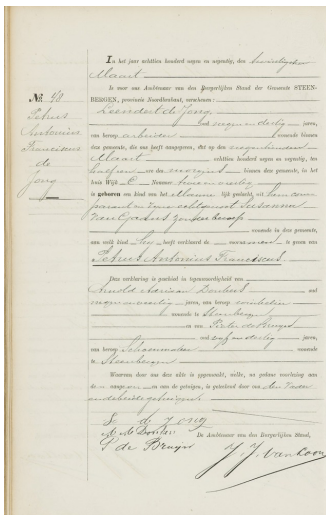 In het jaar achttien honderd negen en negentig, den twintigsten
Maart is voor ons Ambtenaar van den Burgerlijken Stand der Gemeente STEEN-
BERGEN, provincie Noordbrabant, verschenen:
Leendert de Jong
oud negenendertig jaren,
van beroep arbeider wonende binnen
deze gemeente, die ons heeft aangegeven, dat op den negentienden
Maart achttien honderd negen en negentig, ten
ure des morgens binnen deze gemeente, in het
huis Wijk C Nummer
is geboren een kind van het Mannelijk geslacht, uit hem com
parant en zijne echtgenoot Susanna
zonder beroep
wonende in deze gemeente,
aan welk kind heeft verklaard de voornamen te geven van
Petrus Antonius Franciscus
Deze verklaring is geschied in tegenwoordigheid van
Arnold Adriaan Donkers oud
jaren, van beroep winkelier
wonende te Steenbergen
en van Pieter de Bruijn
oud dertig jaren,
van beroep Schoenmaker wonende
te Steenbergen
Waarvan door ons deze akte is opgemaakt, welke, na gedane voorlezing aan
de aangever en aan de getuigen, is geteekend door ons den Vader
en de beide getuigen
L de Jong
De Ambtenaar van den Burgerlijken Stand,
P de Bruijn
J. J. van Loon
No. 48
Petrus
Antonius
Franciscus
de
Jong